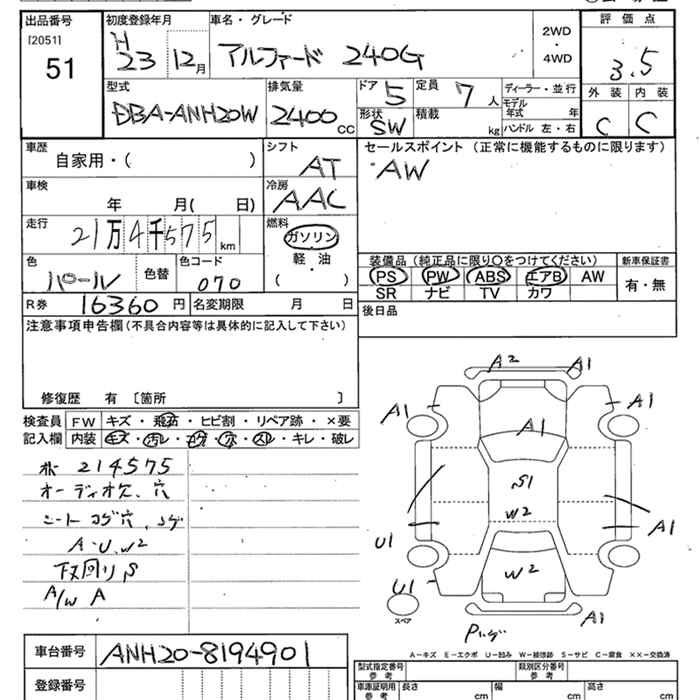 出品番号
[2051]
51
初度登録年月
H
23
12月
車名・グレード
アルファード 240G
2WD
・
4WD
評価点
3.5
外装 内装
C C
型式
DBA-ANH20W
排気量
2400
CC
ドア
5
形状
SW
定員
7
人
積載
kg
ディーラー・並行
モデル
年式 年
ハンドル 左・右
車歴
自家用・( )
シフト
AT
セールスポイント (正常に機能するものに限ります)
・AW
車検
年 月( 日)
冷房
AAC
走行
21万4千575 km
燃料
ガソリン
軽・油
・
( )
色
パール
色替
色コード
070
装備品 (純正品に限り○をつけてください)
PS PW ABS エアB AW
SR ナビ TV カワ
新車保証書
有・無
R券
16360 円
名変期限 月 日
後日品
注意事項申告欄(不具合内容等は具体的に記入して下さい)
修復歴 有 〔箇所 〕
検査員
記入欄
FW キズ・飛石・ヒビ割・リペア跡・×要
内装 キズ・汚レ・コゲ・穴・スレ・キレ・破レ
214575
オーディオ欠、穴
シート コゲ穴、コゲ
A・U、W2
下回りS
A/W A
A2
A1
A1
A1
A1
S1
W2
A1
U1
W2
U1
A1
スペア
A-キズ E-エクボ U-凹み W-補修跡 S-サビ C-腐食 ××-交換済
車台番号
ANH20-8194901
登録番号
型式指定番号
参考
類別区分番号
参考
車庫証明用
参考
長さ cm
幅 cm
高さ cm